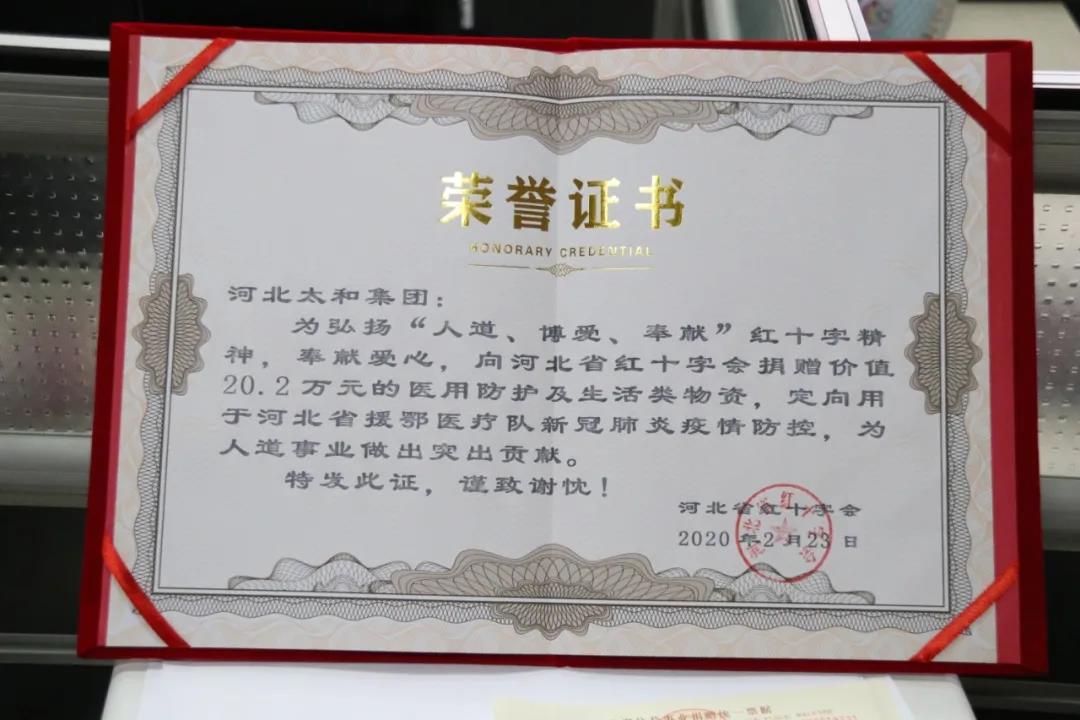 荣誉证书
HONORARY CREDENTIAL
河北太和集团：
为弘扬“人道、博爱、奉献”红十字精
神，奉献爱心，向河北省红十字会捐赠价值
20.2万元的医用防护及生活类物资，定向用
于河北省援鄂医疗队新冠肺炎疫情防控，为
人道事业做出突出贡献。
特发此证，谨致谢忱！
河北省红十字会
2020年2月23日